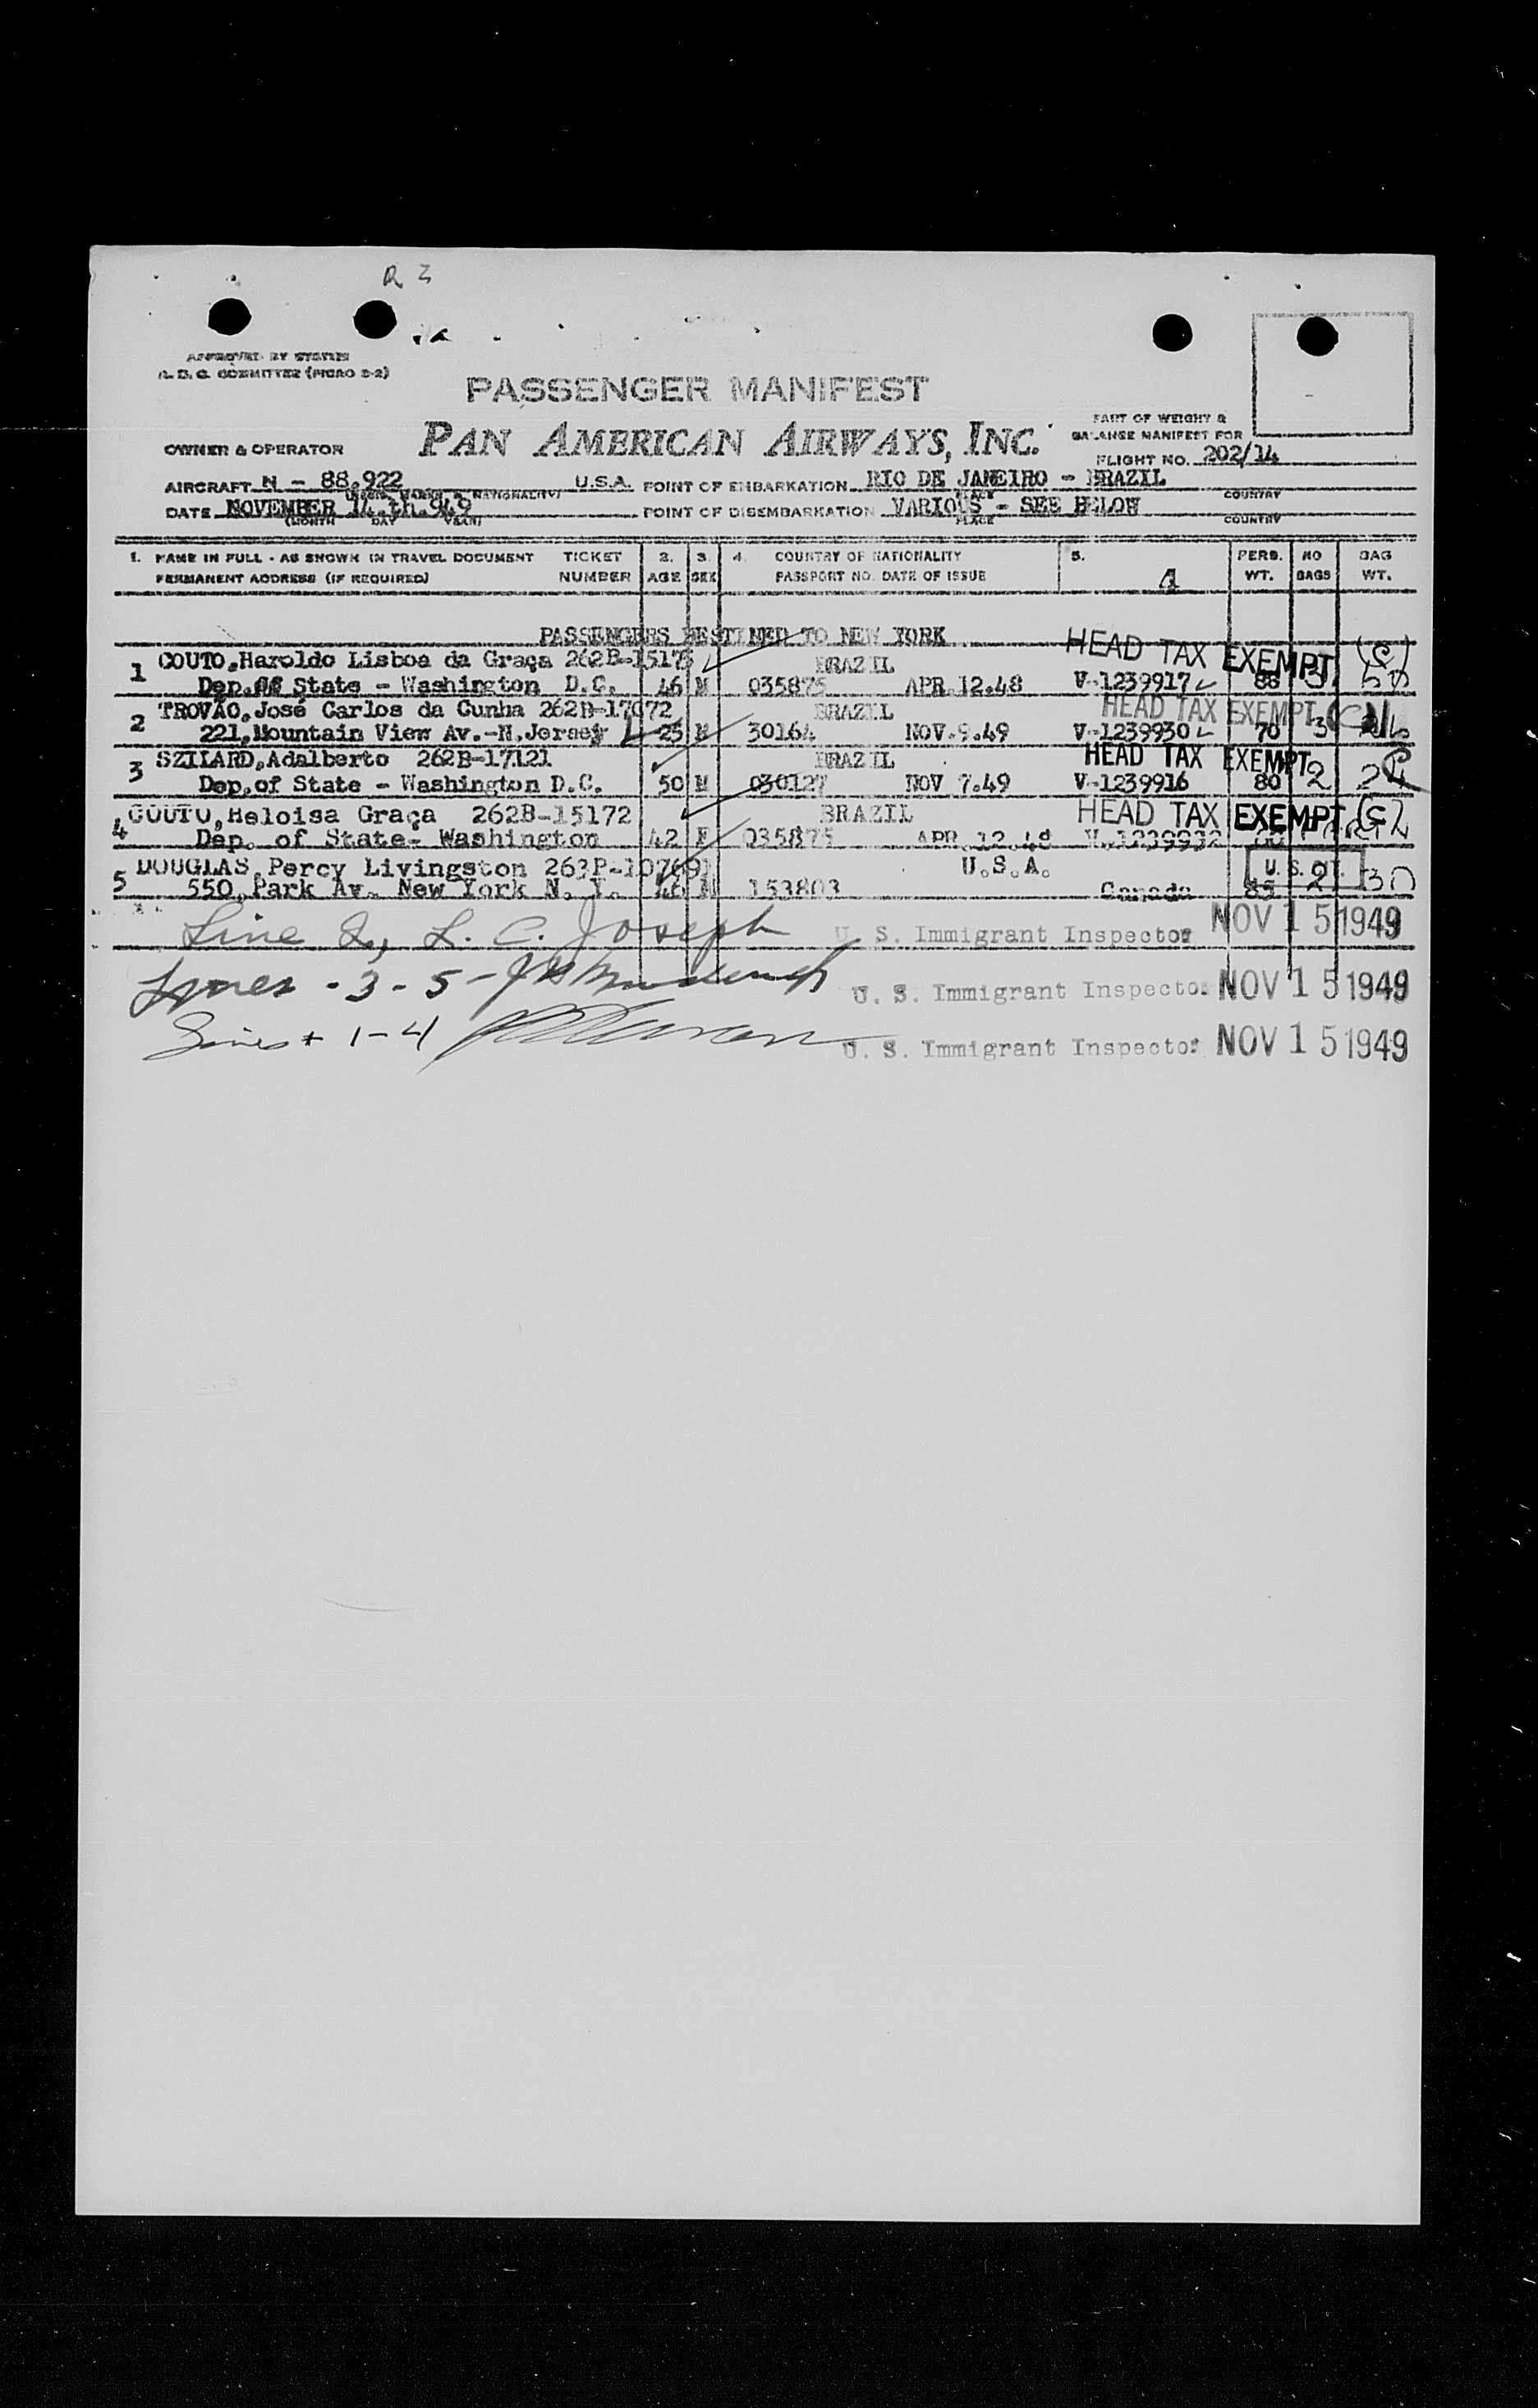 APPROVED BY STATES
PASSENGER MANIFEST
PAN AMERICAN AIRWAYS, INC.
PART OF WEIGHT &
BALANCE MANIFEST FOR
FLIGHT NO. 202/14
OWNER & OPERATOR
AIRCRAFT N - 88.922 U.S.A. POINT OF EMBARKATION RIO DE JANEIRO - BRAZIL
PLACE COUNTRY
DATE NOVEMBER 14.th.949 POINT OF DISEMBARKATION VARIOUS - SEE BELOW
(MONTH DAY YEAR) PLACE COUNTRY
1. NAME IN FULL - AS SHOWN IN TRAVEL DOCUMENT TICKET 2. 3. 4. COUNTRY OF NATIONALITY 5. PERS. NO BAG
PERMANENT ADDRESS (IF REQUIRED) NUMBER AGE SEX PASSPORT NO. DATE OF ISSUE WT. BAGS WT.
PASSENGERS DESTINED TO NEW YORK
1 COUTO,Haroldo Lisboa da Graça BRAZIL HEAD TAX EXEMPT (C)
Dep. State - Washington D.C. 46 M 035875 APR.12.48 V-1239917 88
2 TROVÃO,José Carlos da Cunha 262B-17072 BRAZIL HEAD TAX EXEMPT
221,Mountain View Av.-N.Jersey 25 M 30164 NOV.9.49 V-1239930 70 3
3 SZILARD,Adalberto 262B-17121 BRAZIL HEAD TAX EXEMPT
Dep.of State - Washington D.C. 50 M 030127 NOV 7.49 V-1239916 80 2 24
4 COUTO,Heloisa Graça 262B-15172 BRAZIL HEAD TAX EXEMPT (C)
Dep. of State- Washington 42 F 035875 APR.12.48 V.1239932
5 DOUGLAS,Percy Livingston U.S.A.
550,Park Av. New York N. Y. 46 M 153803 Canada 85 2 30
Line 2, L. C. Joseph U. S. Immigrant Inspector NOV 15 1949
Lines - 3 - 5 - U. S. Immigrant Inspector NOV 15 1949
Lines + 1-4 U. S. Immigrant Inspector NOV 15 1949